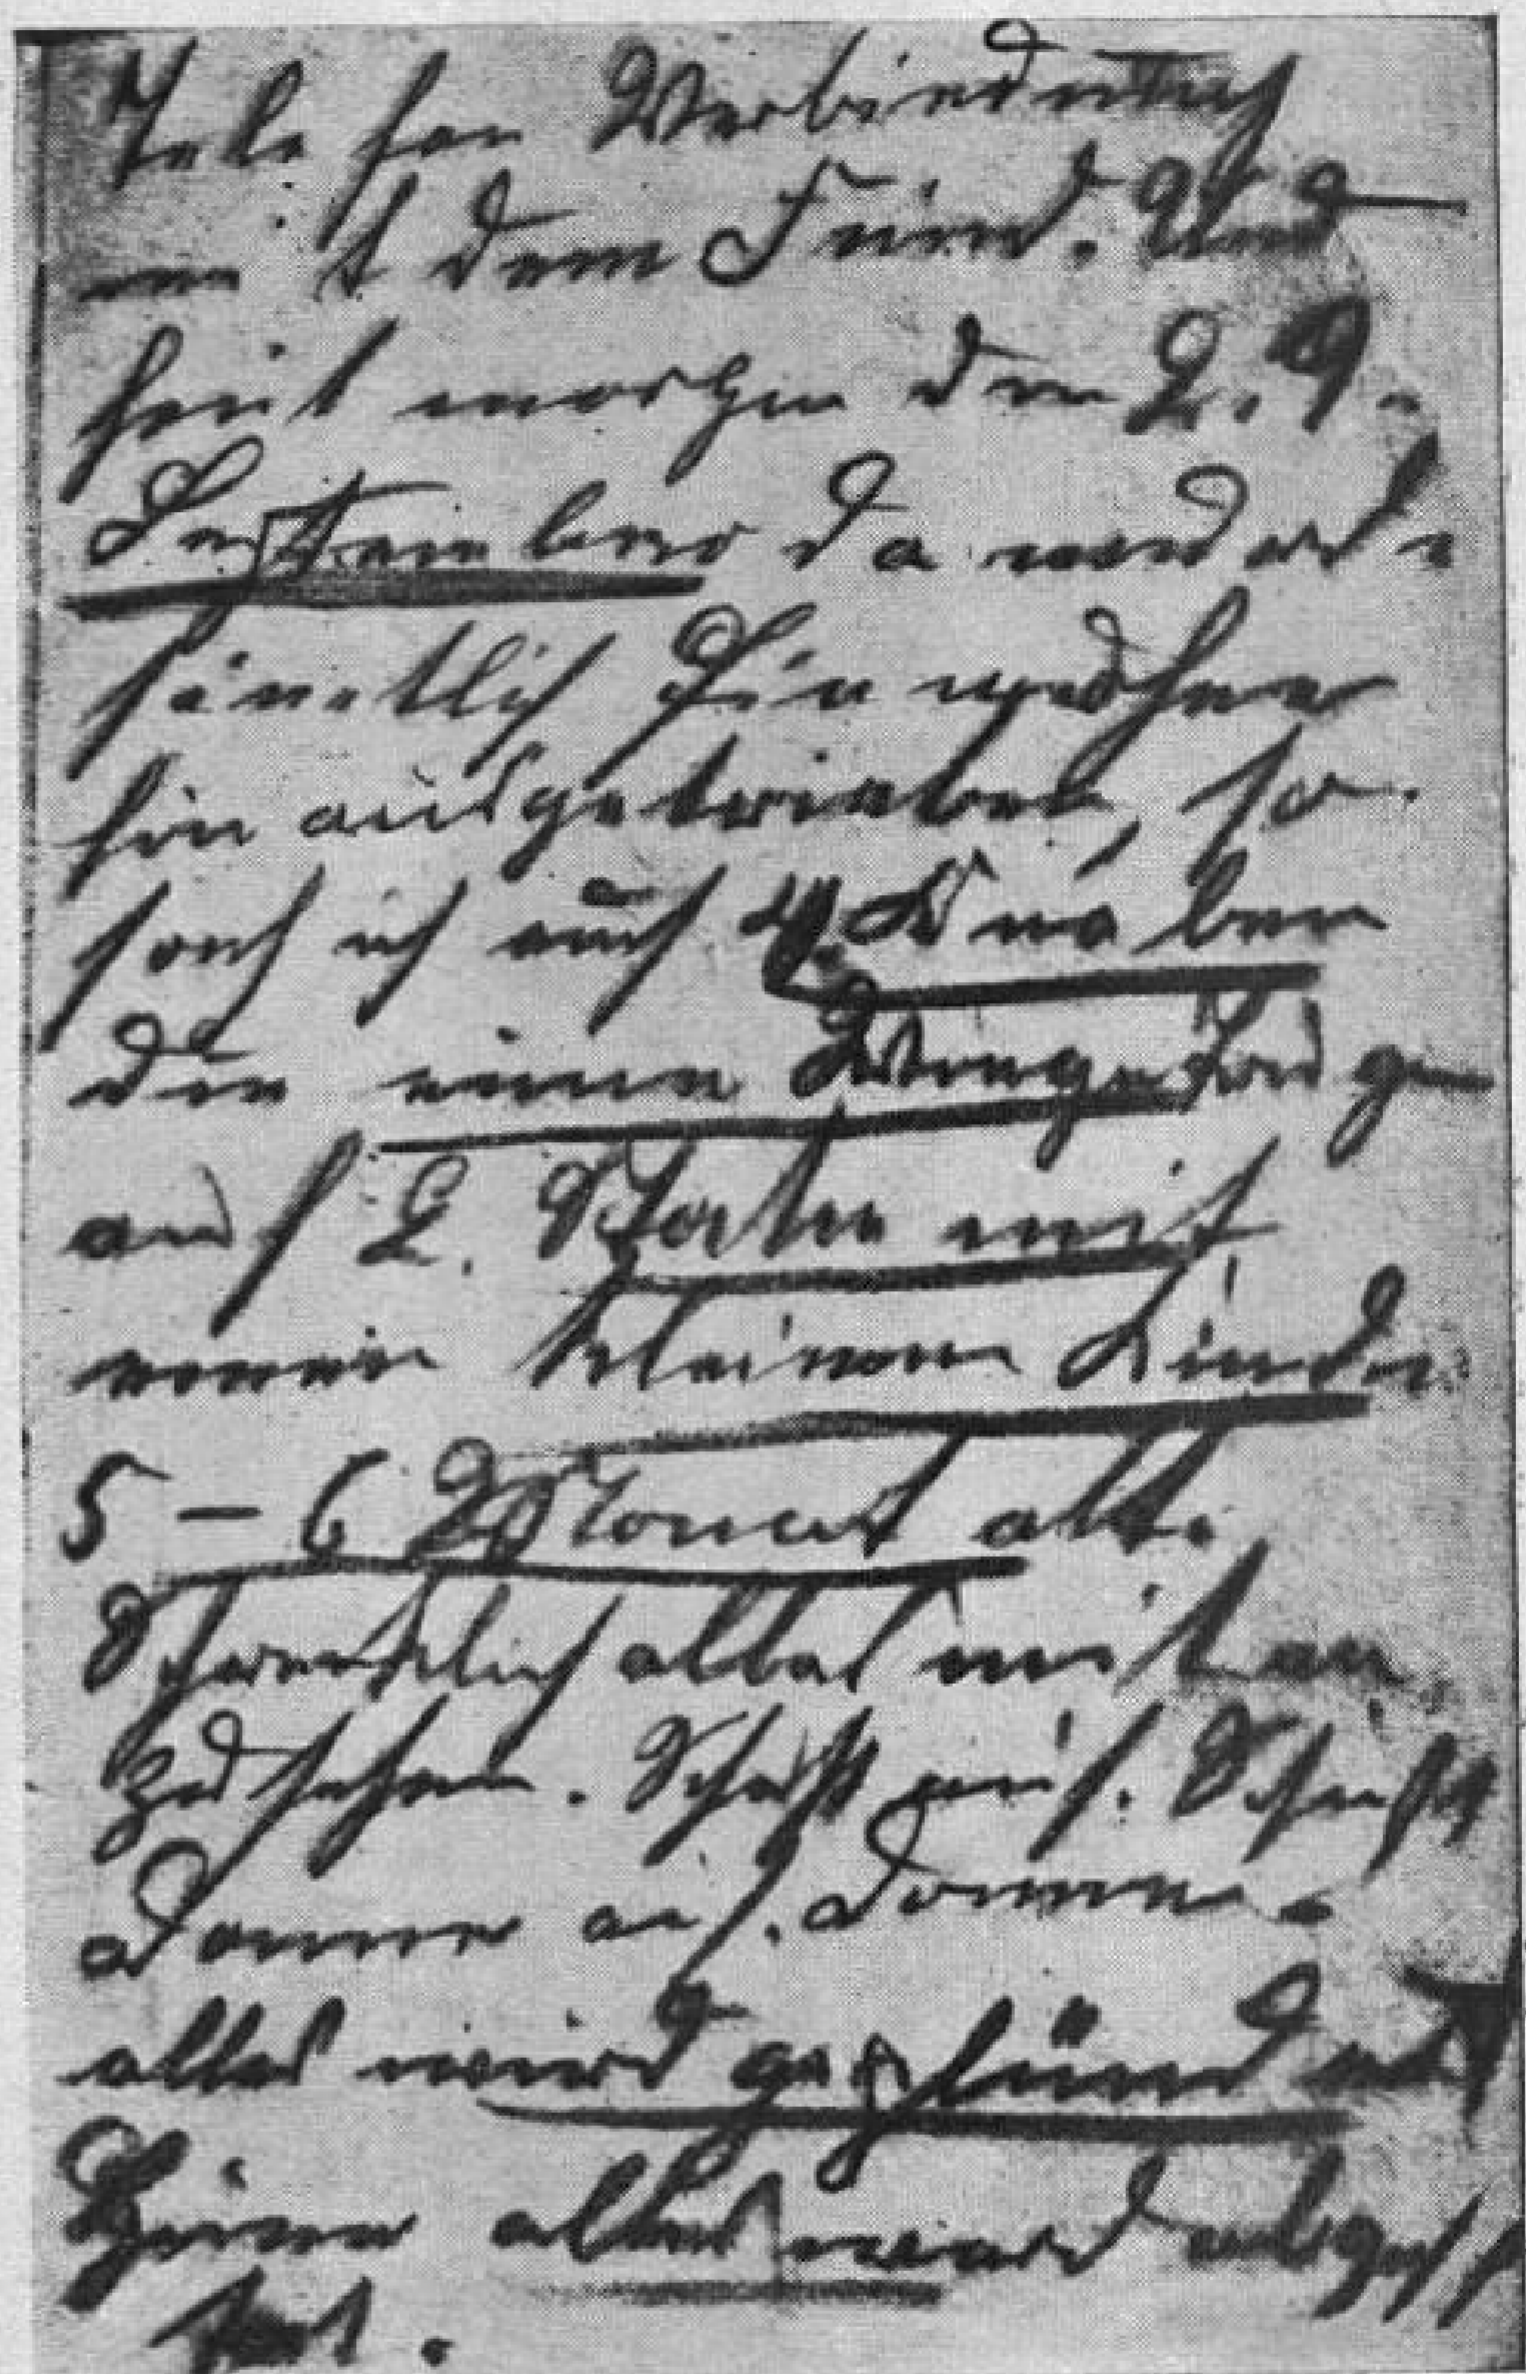 Tele fon Verbindung
mit dem Feind. Und
heut morgen den 2.9.
September da wurde
sämtlich Einwohner
hin ausgetrieben, so
sah ich auch 4 Knaben
die einen trugen
auf 2. mit
einen kleinen Kinde
5 – 6 Monat alt.
Schrecklich alles mit an
zusehen. Schuß auf. Schuß
Donner auf. Donner.
alles wird geplündert
alles ward